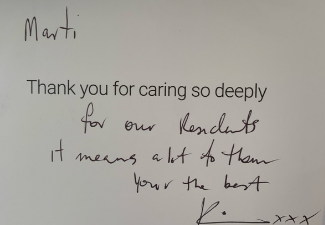 Marti
Thank you for caring so deeply
for our Residents
it means a lot to them
Your the best
xxx